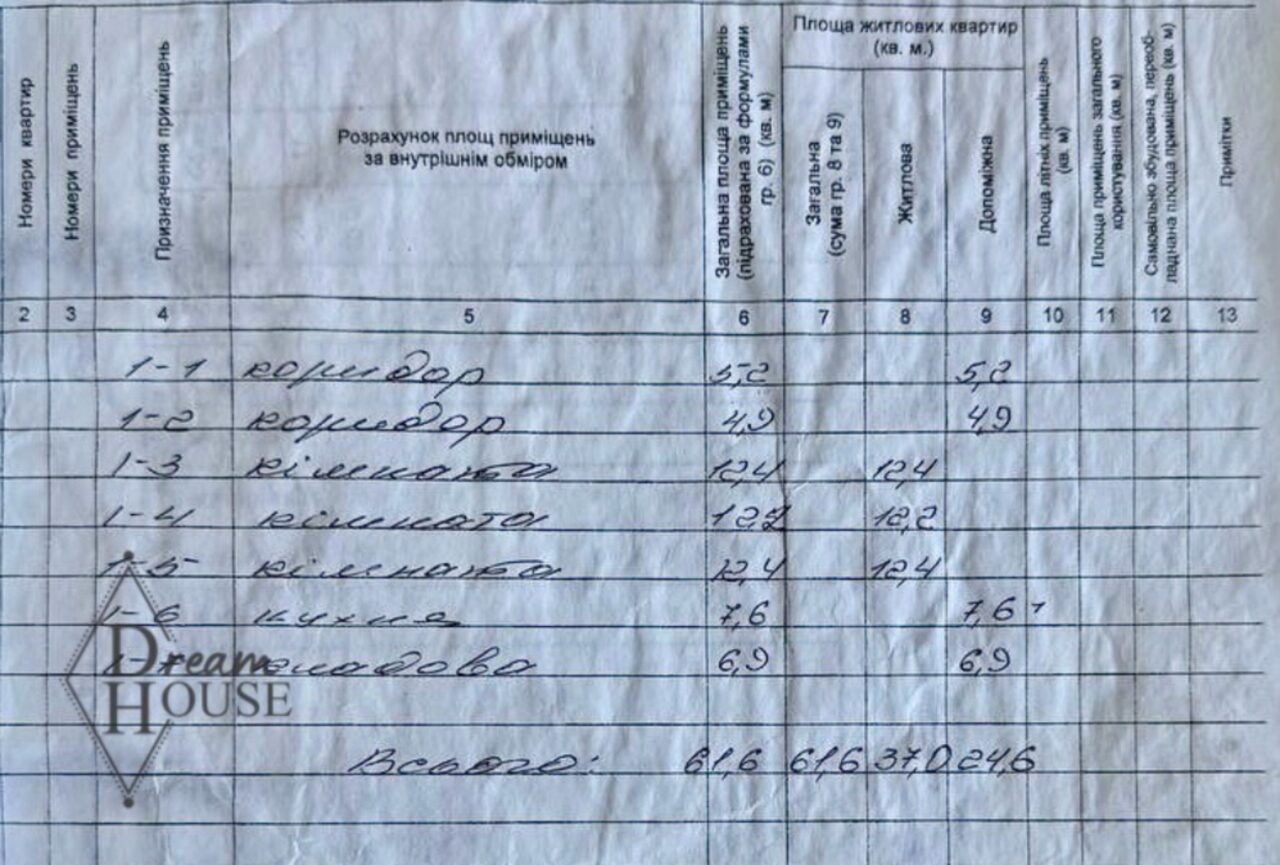 Номери квартир
Номери приміщень
Призначення приміщень
Розрахунок площ приміщень
за внутрішнім обміром
Загальна площа приміщень
(підрахована за формулами
гр. 6) (кв. м)
Площа житлових квартир
(кв. м.)
Загальна
(сума гр. 8 та 9)
Житлова
Допоміжна
Площа літніх приміщень
(кв. м)
Площа приміщень загального
користування (кв. м)
Самовільно збудована, переоб-
ладнана площа приміщень (кв. м)
Примітки
2 3 4 5 6 7 8 9 10 11 12 13
1-1 коридор 5,2 5,2
1-2 коридор 4,9 4,9
1-3 кімната 12,4 12,4
1-4 кімната 12,2 12,2
1-5 кімната 12,4 12,4
1-6 кухня 7,6 7,6
1-7 кладова 6,9 6,9
Dream
HOUSE
Всього: 61,6 61,6 37,0 24,6